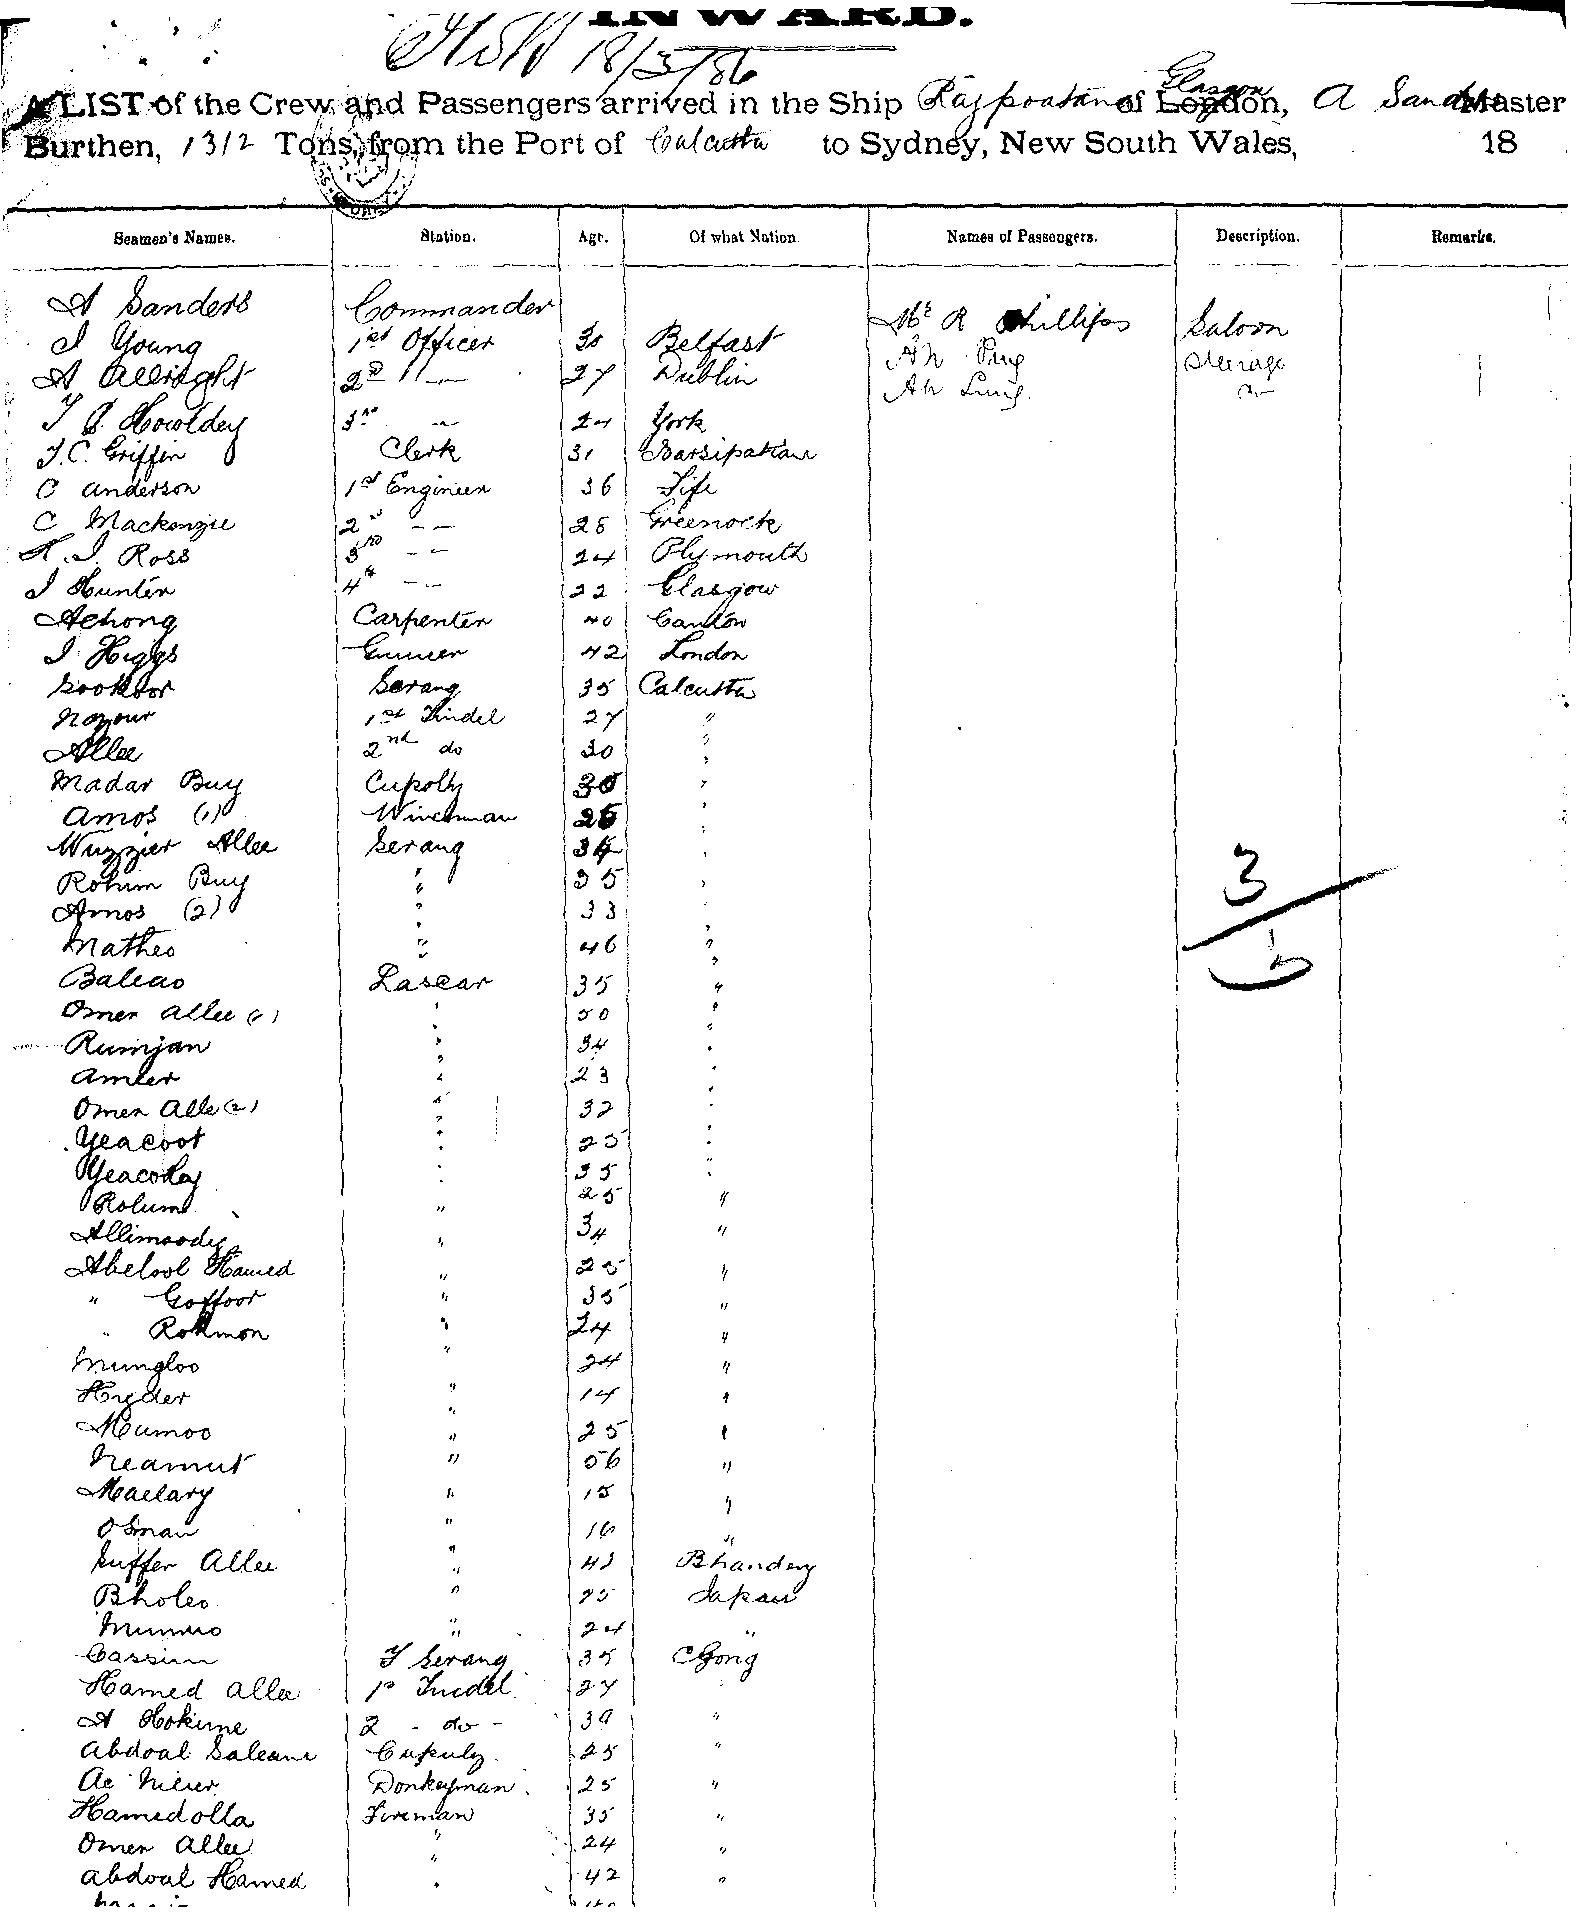 INWARD.
18/3/86
A LIST of the Crew and Passengers arrived in the Ship Rajpootana of London, Glasgow A Sanders Master
Burthen, 1312 Tons, from the Port of Calcutta to Sydney, New South Wales, 18
Seamen's Names. Station. Age. Of what Nation. Names of Passengers. Description. Remarks.
A Sanders Commander Mr R Phillips Saloon
J Young 1st Officer 30 Belfast Ah Ping Steerage
A Allright 2nd " — 27 Dublin Ah Ling
3rd 24 York
J.C. Griffin Clerk 31
C Anderson 1st Engineer 36 Fife
C Mackenzie 2nd -- 28 Greenock
J. Ross 3rd -- 24 Plymouth
J Hunter 4th -- 22 Glasgow
Achong Carpenter 40 Canton
J Higgs Gunner 42 London
Gookoor Serang 35 Calcutta
1st Tindel 27 "
Allee 2nd do 30 "
Madar Buy 30 "
Amos (1) Winchman 26 "
Wuzzier Allee Serang 34 "
Rohim Buy " 35 "
Amos (2) " 33 "
Matheo " 46 "
Baleao Lascar 35 "
Omer Allee (1) " 50 "
Rumjan " 34 "
Ameer " 23 "
Omer Alle (2) " 32 "
Yeacoot " 25 "
" 35 "
" 25 "
Allimoody " 34 "
Abdool Hamed " 25 "
" Goffoor " 35 "
" Rohmon " 24 "
Mungloo " 24 "
Hyder " 14 "
Mumoo " 25 "
Neamut " 56 "
" 15 "
Osman " 16 "
Allee " 43 Bhandery
Bholeo " 25 Japan
" 24 "
Cassim F Serang 35
Hamed Allee 1st Tindel 27
A Hokime 2 - do - 39 "
Abdoal 25 "
Donkeyman 25 "
Hamedolla Fireman 35 "
Omer Allee " 24 "
Abdoul Hamed " 42 "
3